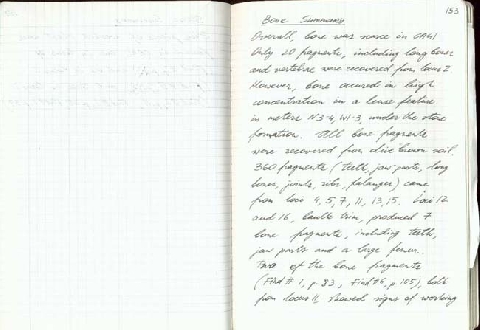 153
Bone Summary
Overall, bone was scarce in OAG1
Only 20 fragments, including long bones
and vertebrae were recovered from locus 2
However, bone occured in high
concentration in a lense feature
in meters N3-4, W1-3, under the stone
formation. All bone fragments
were recovered from olive brown soil.
360 fragments (teeth, jaw parts, long
bones, joints, ribs, falanges) came
from loci 4, 5, 7, 11, 13, 15. Loci 12
and 16, produced 7
bone fragments, including teeth,
jaw parts and a large femur.
Two of the bone fragments
(Find # 1, p. 83, Find # 5, p 105), both
from locus showed signs of working